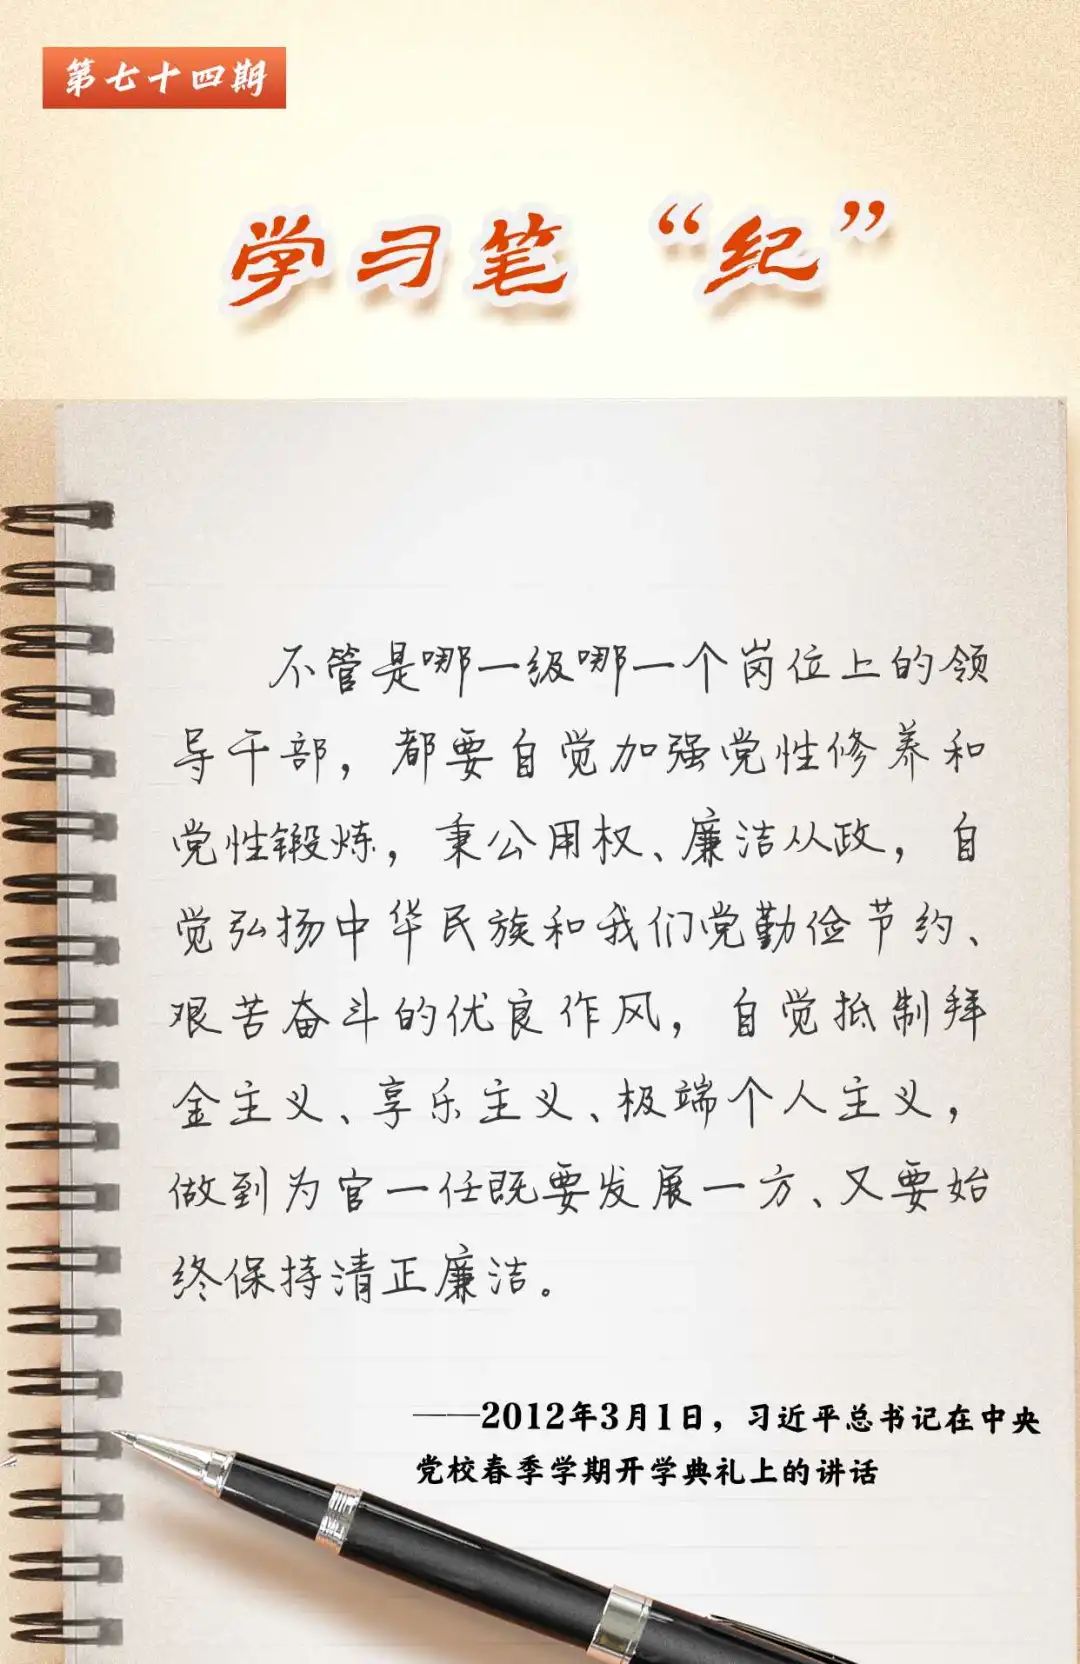 第七十四期
学习笔“纪”
不管是哪一级哪一个岗位上的领
导干部，都要自觉加强党性修养和
党性锻炼，秉公用权、廉洁从政，自
觉弘扬中华民族和我们党勤俭节约、
艰苦奋斗的优良作风，自觉抵制拜
金主义、享乐主义、极端个人主义，
做到为官一任既要发展一方、又要始
终保持清正廉洁。
——2012年3月1日，习近平总书记在中央
党校春季学期开学典礼上的讲话